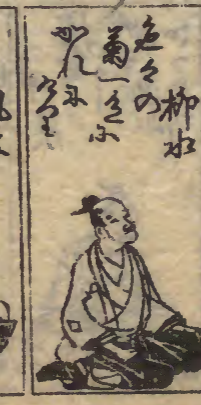 柳水
色々の
菊一色に
かれに
けり